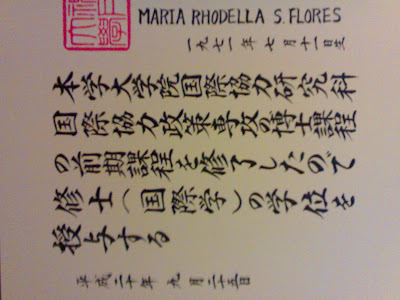 MARIA RHODELLA S. FLORES
一九七一年七月十一日生
本学大学院国際協力研究科
国際協力政策専攻の博士課程
の前期課程を修了したので
修士(国際学)の学位を
授与する
平成二十年 九月二十五日